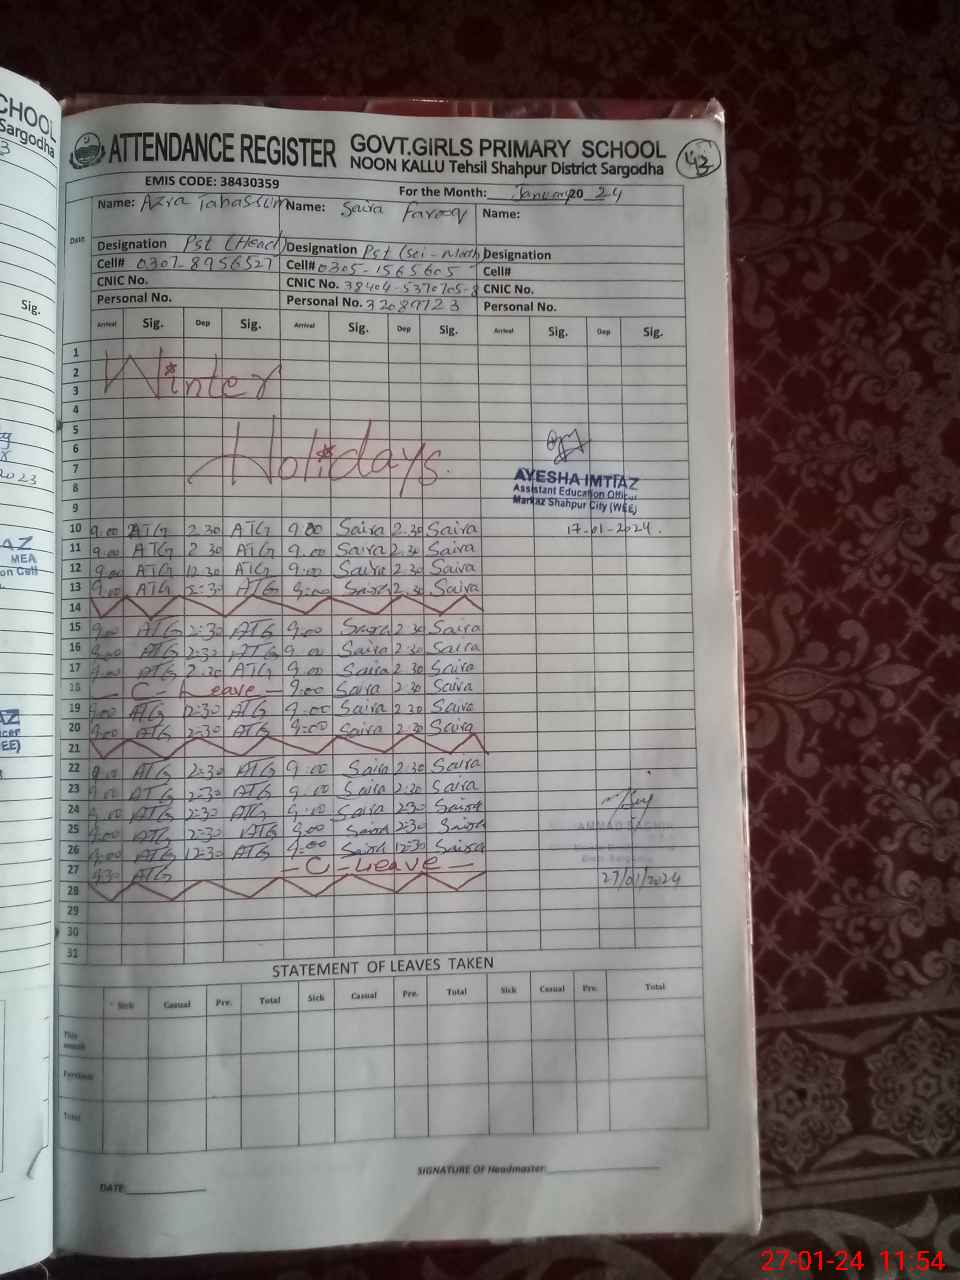 CHOOL
Sargodha
3
Sig.
2023
AZ
MEA
on Cell
AZ
cer
EE)
ATTENDANCE REGISTER GOVT.GIRLS PRIMARY SCHOOL
NOON KALLU Tehsil Shahpur District Sargodha
43
EMIS CODE: 38430359 For the Month: January 20 24
Date Name: Azra Tabassum Name: Saira Farooq Name:
Designation Pst (Head) Designation Pst (Sci-Math) Designation
Cell# 0307-8956527 Cell# 0305-1565605 Cell#
CNIC No. CNIC No. 38404-5370705-8 CNIC No.
Personal No. Personal No. 32089723 Personal No.
Arrival Sig. Dep Sig. Arrival Sig. Dep Sig. Arrival Sig. Dep Sig.
1
2 Winter
3
4
5
6
7 Holidays.
8
AYESHA IMTIAZ
Assistant Education Officer
Markaz Shahpur City (WEE)
9
10 9.00 ATG 2.30 ATG 9.00 Saira 2.30 Saira 17-01-2024.
11 9.00 ATG 2 30 ATG 9.00 Saira 2.30 Saira
12 9.00 ATG 12.30 ATG 9:00 Saira 2.30 Saira
13 9.00 ATG 2-30 ATG 9:00 Saira 2.30 Saira
14
15 9.00 ATG 2:30 ATG 9:00 Saira 2.30 Saira
16 9.00 ATG 2:30 ATG 9.00 Saira 2.30 Saira
17 9.00 ATG 2.30 ATG 9.00 Saira 2.30 Saira
18 - C - Leave - 9:00 Saira 2.30 Saira
19 9.00 ATG 12:30 ATG 9.00 Saira 2.30 Saira
20 9.00 ATG 2:30 ATG 9:00 Saira 2:30 Saira
21
22 9.00 ATG 2:30 ATG 9:00 Saira 2.30 Saira
23 9.00 ATG 2:30 ATG 9:00 Saira 2:30 Saira
24 9.00 ATG 2:30 ATG 9:00 Saira 230 Saira
25 9.00 ATG 2:30 ATG 9:00 Saira 2:30 Saira
26 9:00 ATG 12:30 ATG 9:00 Saira 12:30 Saira
27 9:30 ATG - C - Leave - 27/01/2024
28
29
30
31
STATEMENT OF LEAVES TAKEN
Sick Casual Pre. Total Sick Casual Pre. Total Sick Casual Pre. Total
This month
Previous
Total
SIGNATURE OF Headmaster:
DATE:
27-01-24 11:54